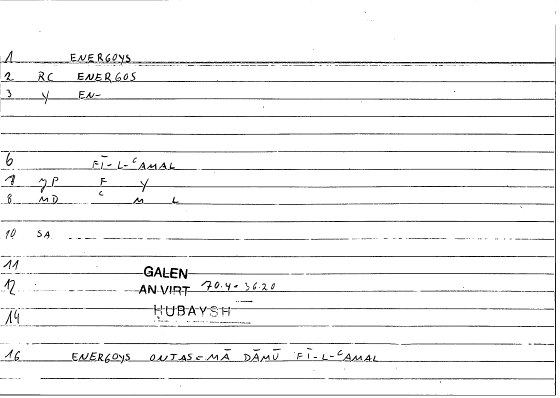 1 ENERGOYS
2 RC ENERGOS
3 Y EN-
6 FĪ-L-ᶜAMAL
7 JP F Y
8 MD ᶜ M L
10 SA
11 GALEN
12 AN VIRT 70.4 = 36.20
14 HUBAYSH
16 ENERGOYS ONTAS = MĀ DĀMŪ FĪ-L-ᶜAMAL